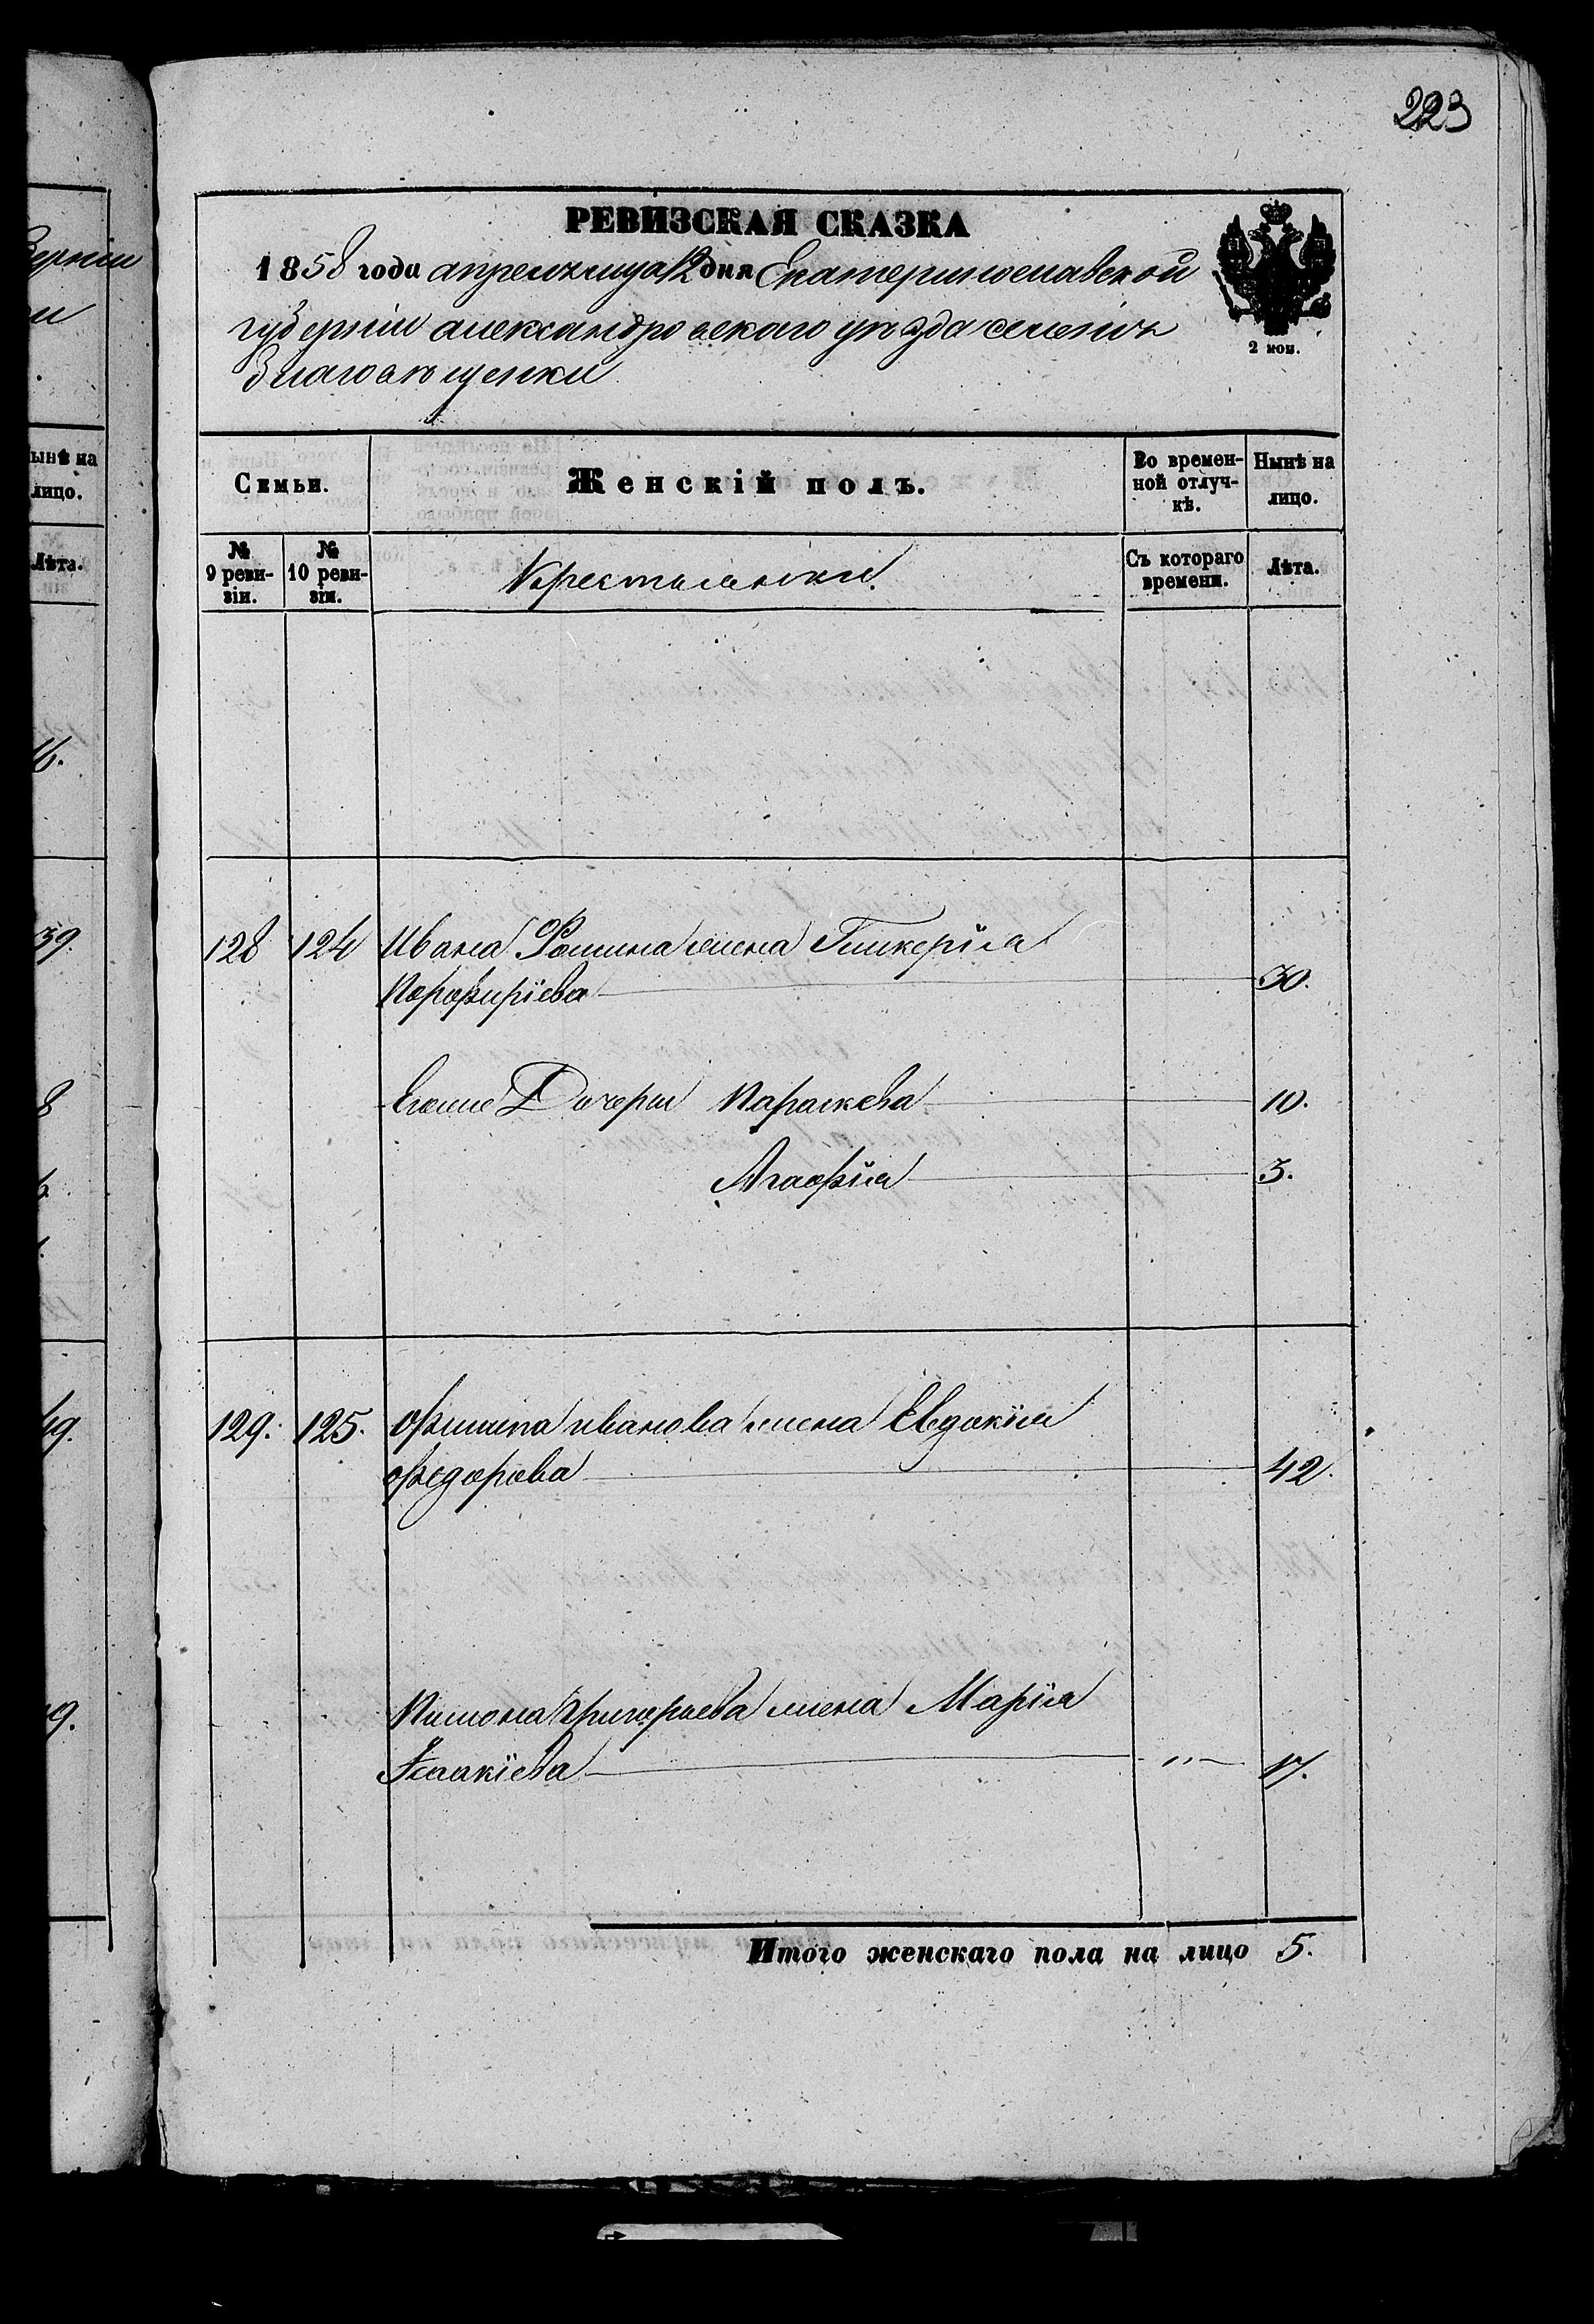 223
РЕВИЗСКАЯ СКАЗКА
1858 года апреля месяца 12 дня Екатеринославской
губерніи александровскаго уѣзда селенія
Благовѣщенки
2 коп.
Семьи.
Женскій полъ.
Во времен-
ной отлуч-
кѣ.
Нынѣ на
лицо.
№
9 реви-
зіи.
№
10 реви-
зіи.
Крестьянки.
Съ котораго
времени.
Лѣта.
128 124 Ивана Фомина жена Гликерія
Порфиріева 30.
Егоже Дочери Параскева 10.
Агафія 5.
129. 125. Филипа иванова жена Евдокія
федорова 42.
Пимона григорьева жена Марія
Исаакіева " 17.
Итого женскаго пола на лицо 5.
ынѣ на
лицо.
Лѣта.
16.
39.
8
49.
9.